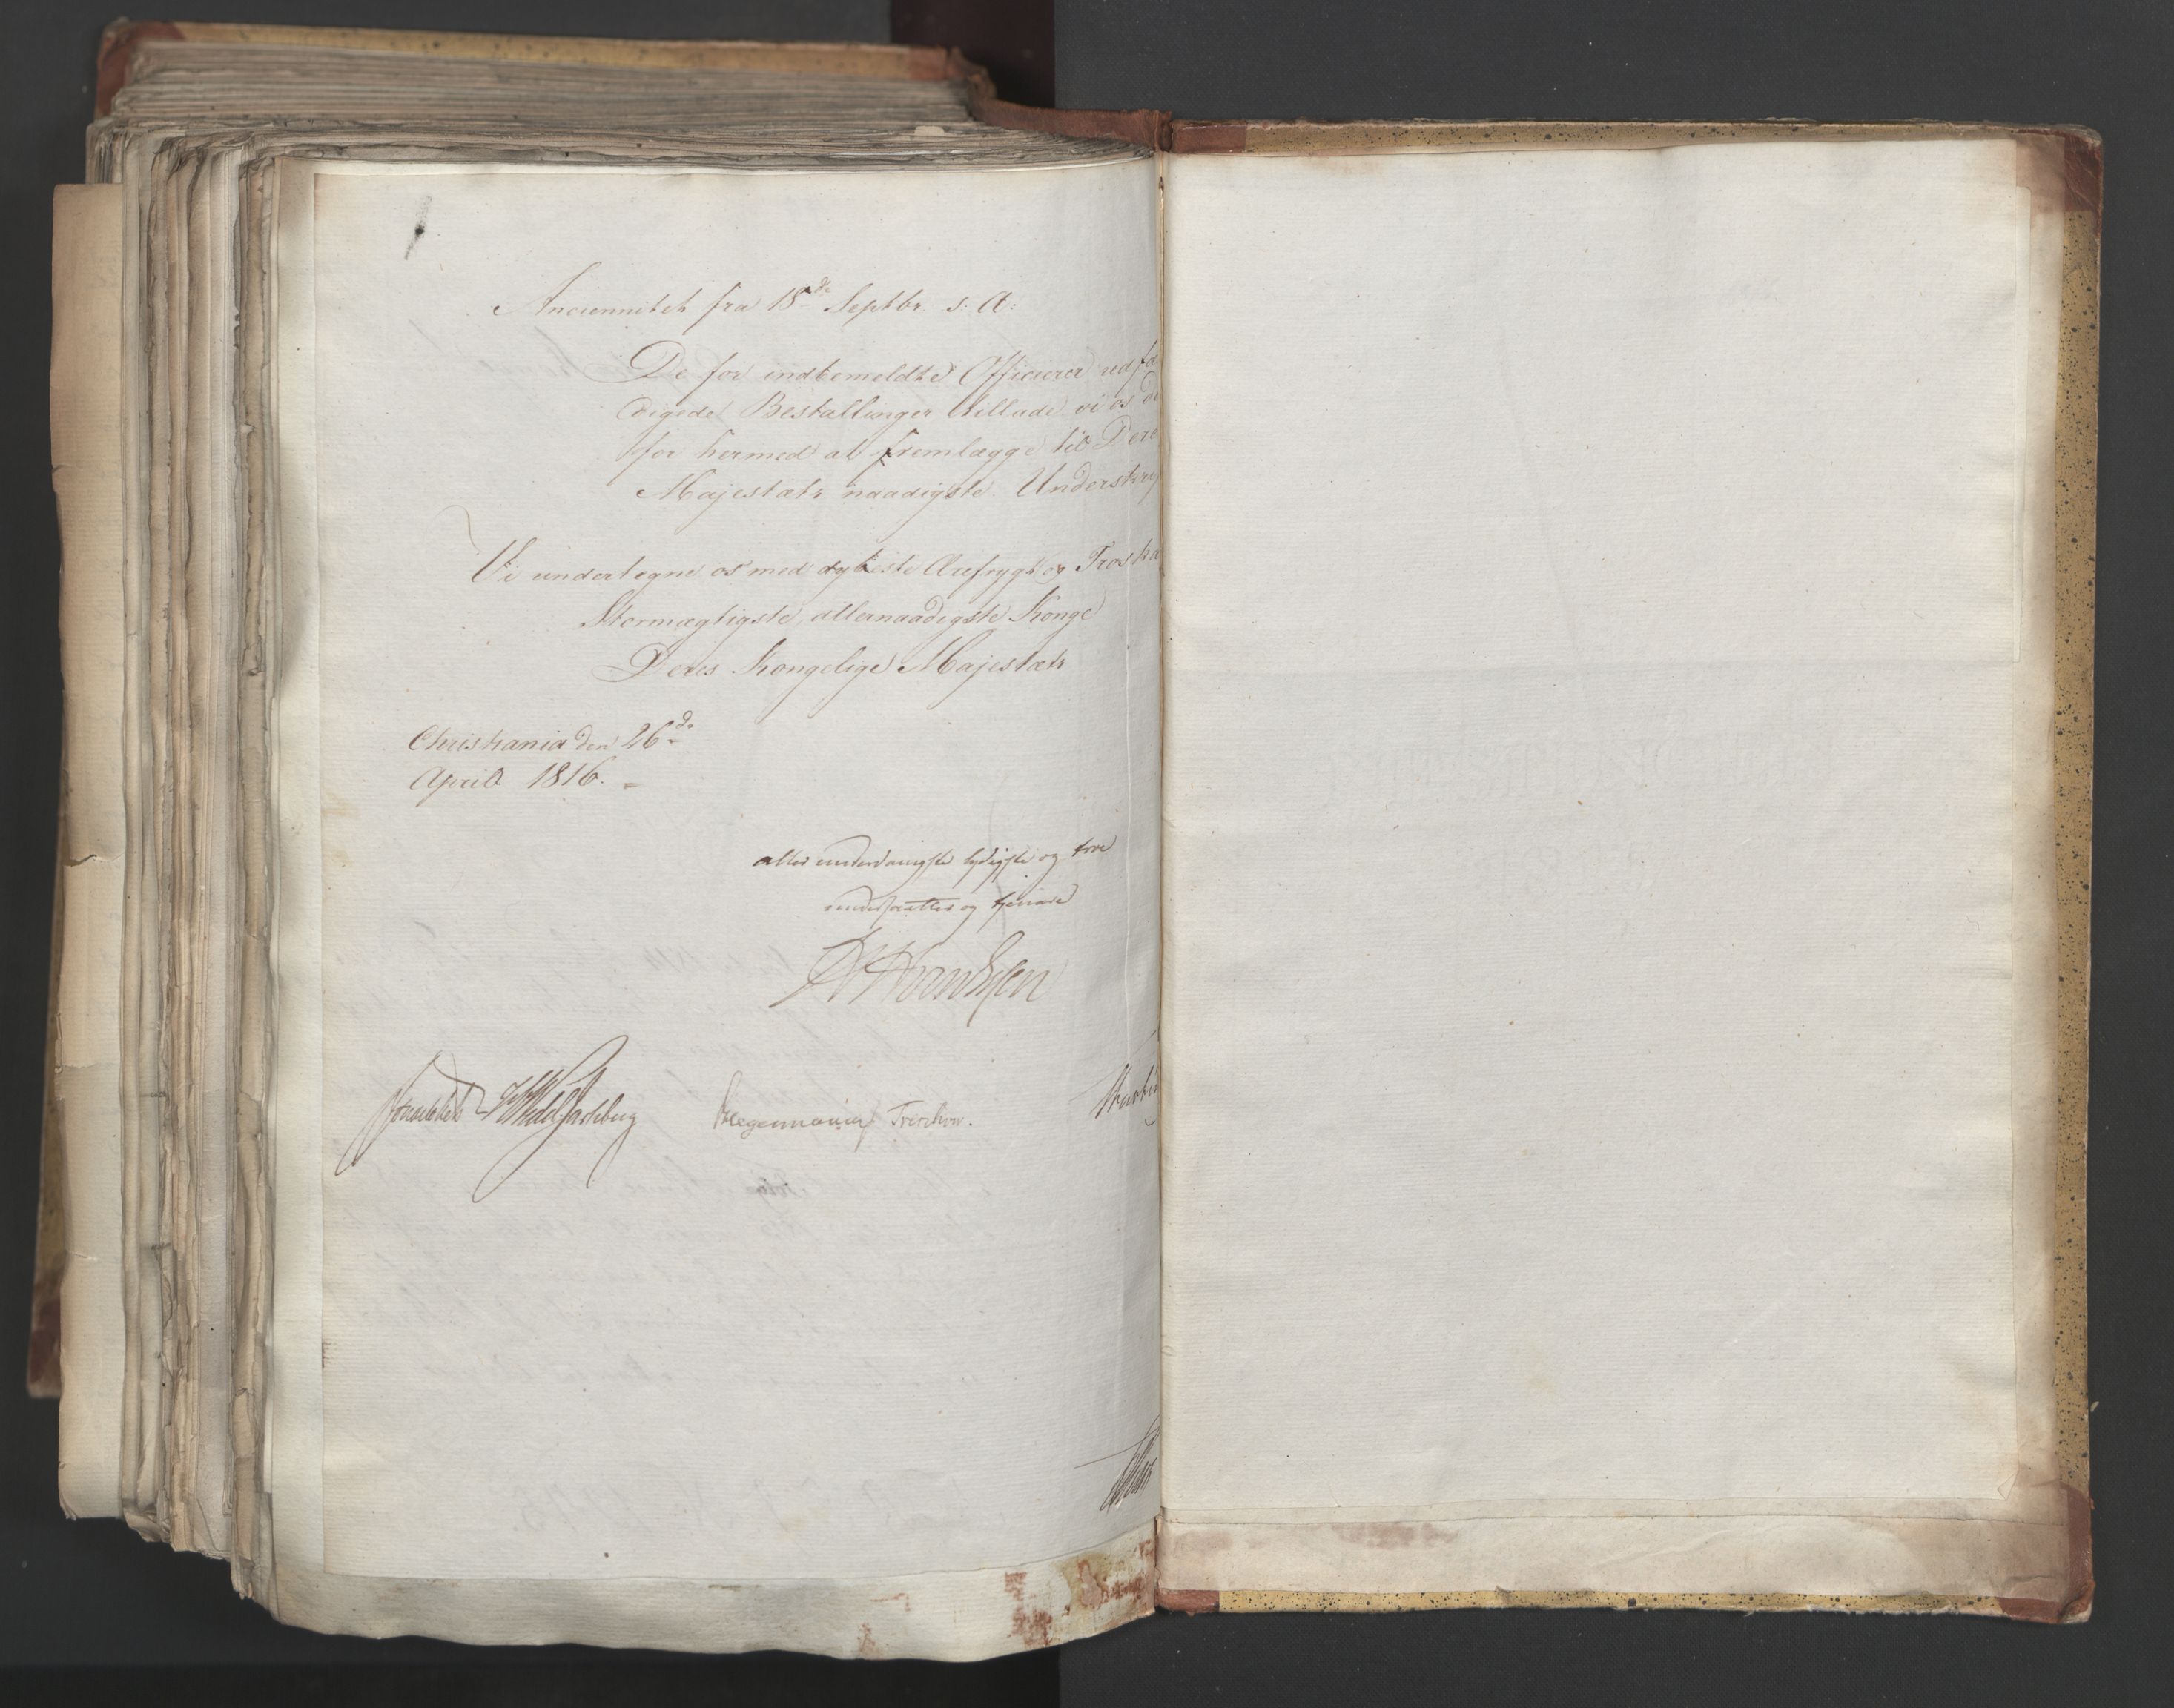 Anciennitet fra 18de Septbr. s: A:
De for indbemeldte Officierer udfæ
digede Bestallinger tillade vi os de
for hermed at fremlægge til Dere
Majestæts naadigste Underskri
Vi undertegne os med dybeste Ærefrygt og Troska
Stormægtigste, allernaadigste Konge
Deres Kongelige Majestæts
Christiania den 26de
April 1816.
allerunderdanigste lydigste og troe
undersaatter og tjenere
Sommerhielm
Wedel Jarlsberg
Treschow.